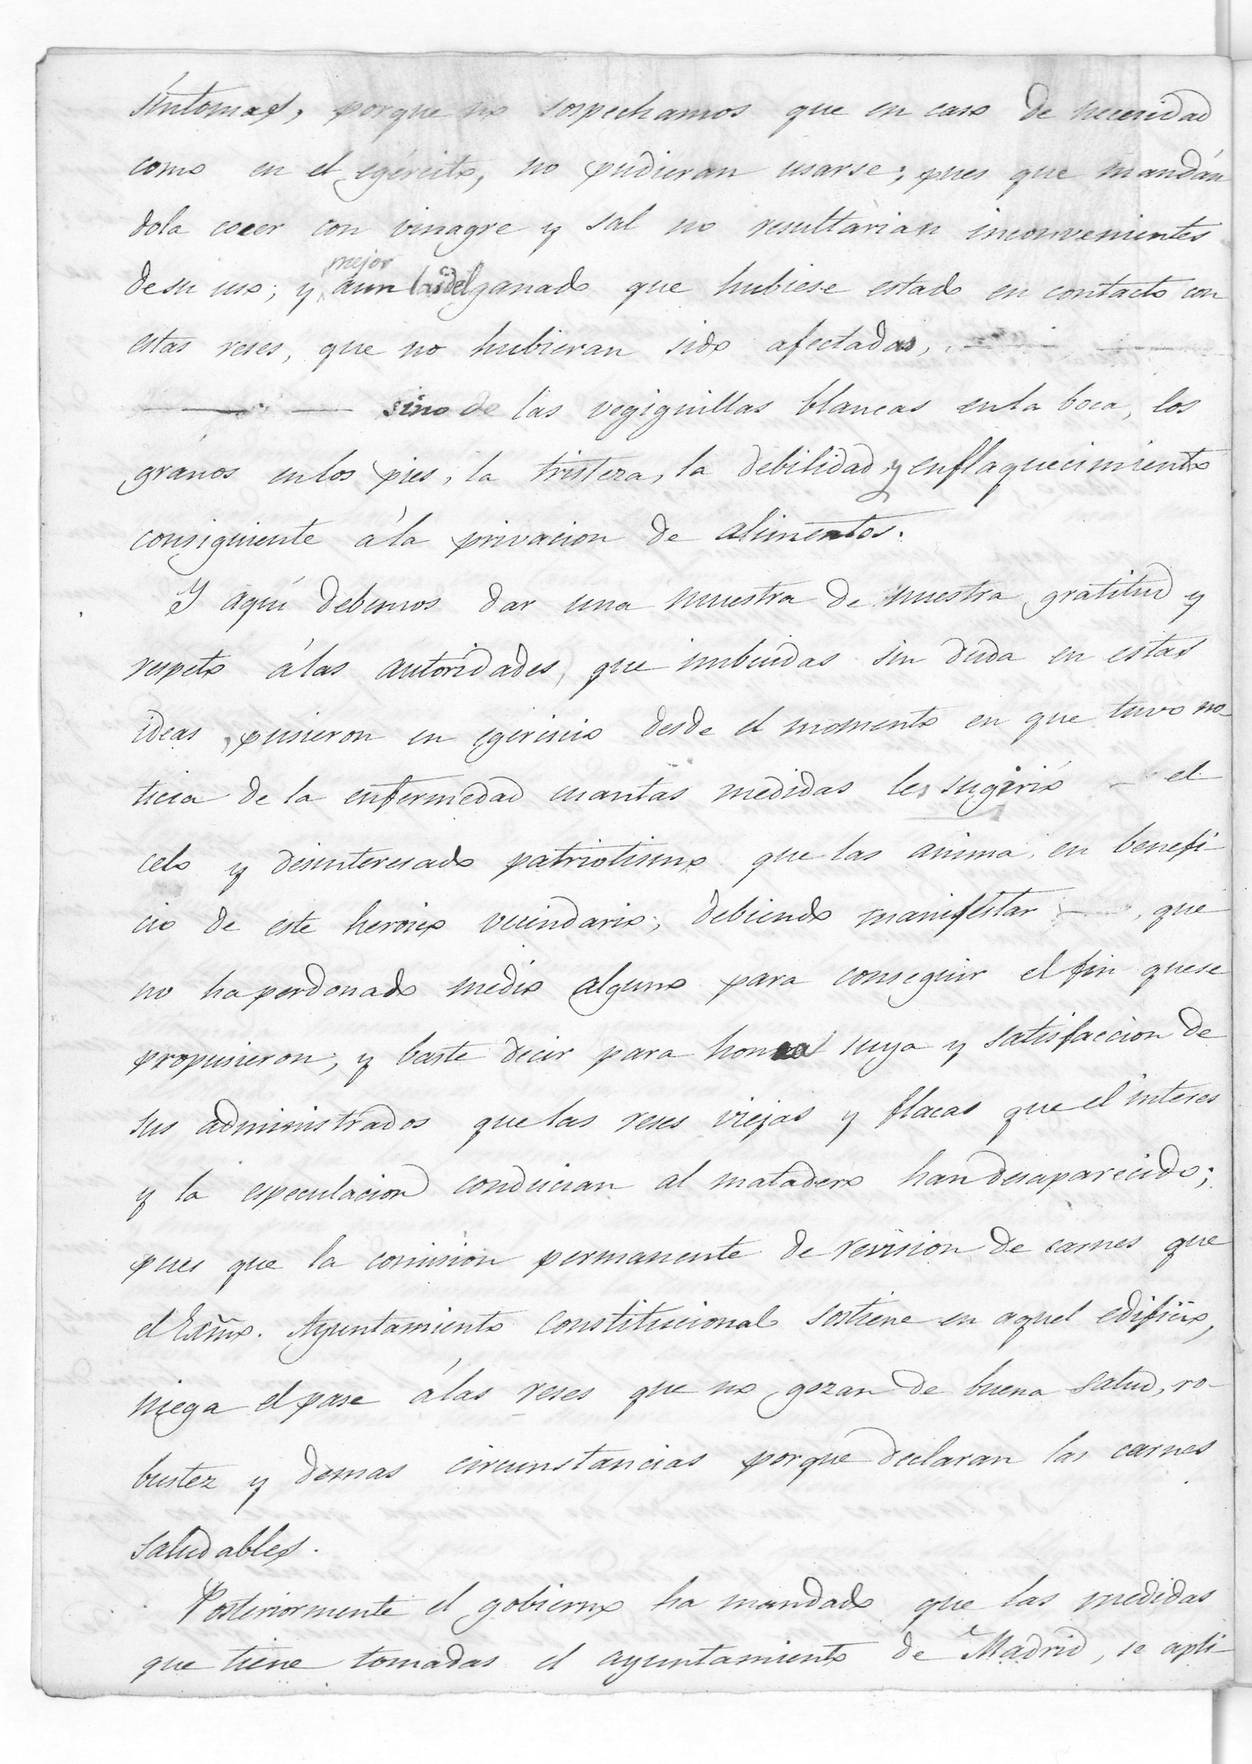 síntomas, porque no sospechamos que en caso de necesidad
como en el egército, no pudieran usarse; pues que mandán
dola cocer con vinagre y sal no resultarian inconvenientes
de su uso; y mejor aun las del ganado que hubiese estado en contacto con
estas reses, que no hubieran sido afectadas,
sino de las vegiguillas blancas en la boca, los
granos en los pies, la tristeza, la debilidad y enflaquecimiento
consiguiente á la privacion de alimentos.
Y aquí debemos dar una muestra de nuestra gratitud y
respeto á las autoridades, que imbuidas sin duda en estas
ideas, pusieron en egercicio desde el momento en que tuvo no-
ticia de la enfermedad cuantas medidas les sugirió el
celo y desinteresado patriotismo que las anima, en benefi
cio de este heroico vecindario; debiendo manifestar, que
no ha perdonado medio alguno para conseguir el fin que se
propusieron; y baste decir para honra suya y satisfaccion de
sus administrados que las reses viejas y flacas que el interes
y la especulacion conducian al matadero han desaparecido;
pues que la comision permanente de revision de carnes que
el Excmo. Ayuntamiento Constitucional sostiene en aquel edificio,
niega el pase á las reses que no gozan de buena salud, ro-
bustez y demas circunstancias porque declaran las carnes
saludables.
Posteriormente el gobierno ha mandado que las medidas
que tiene tomadas el ayuntamiento de Madrid, se apli-